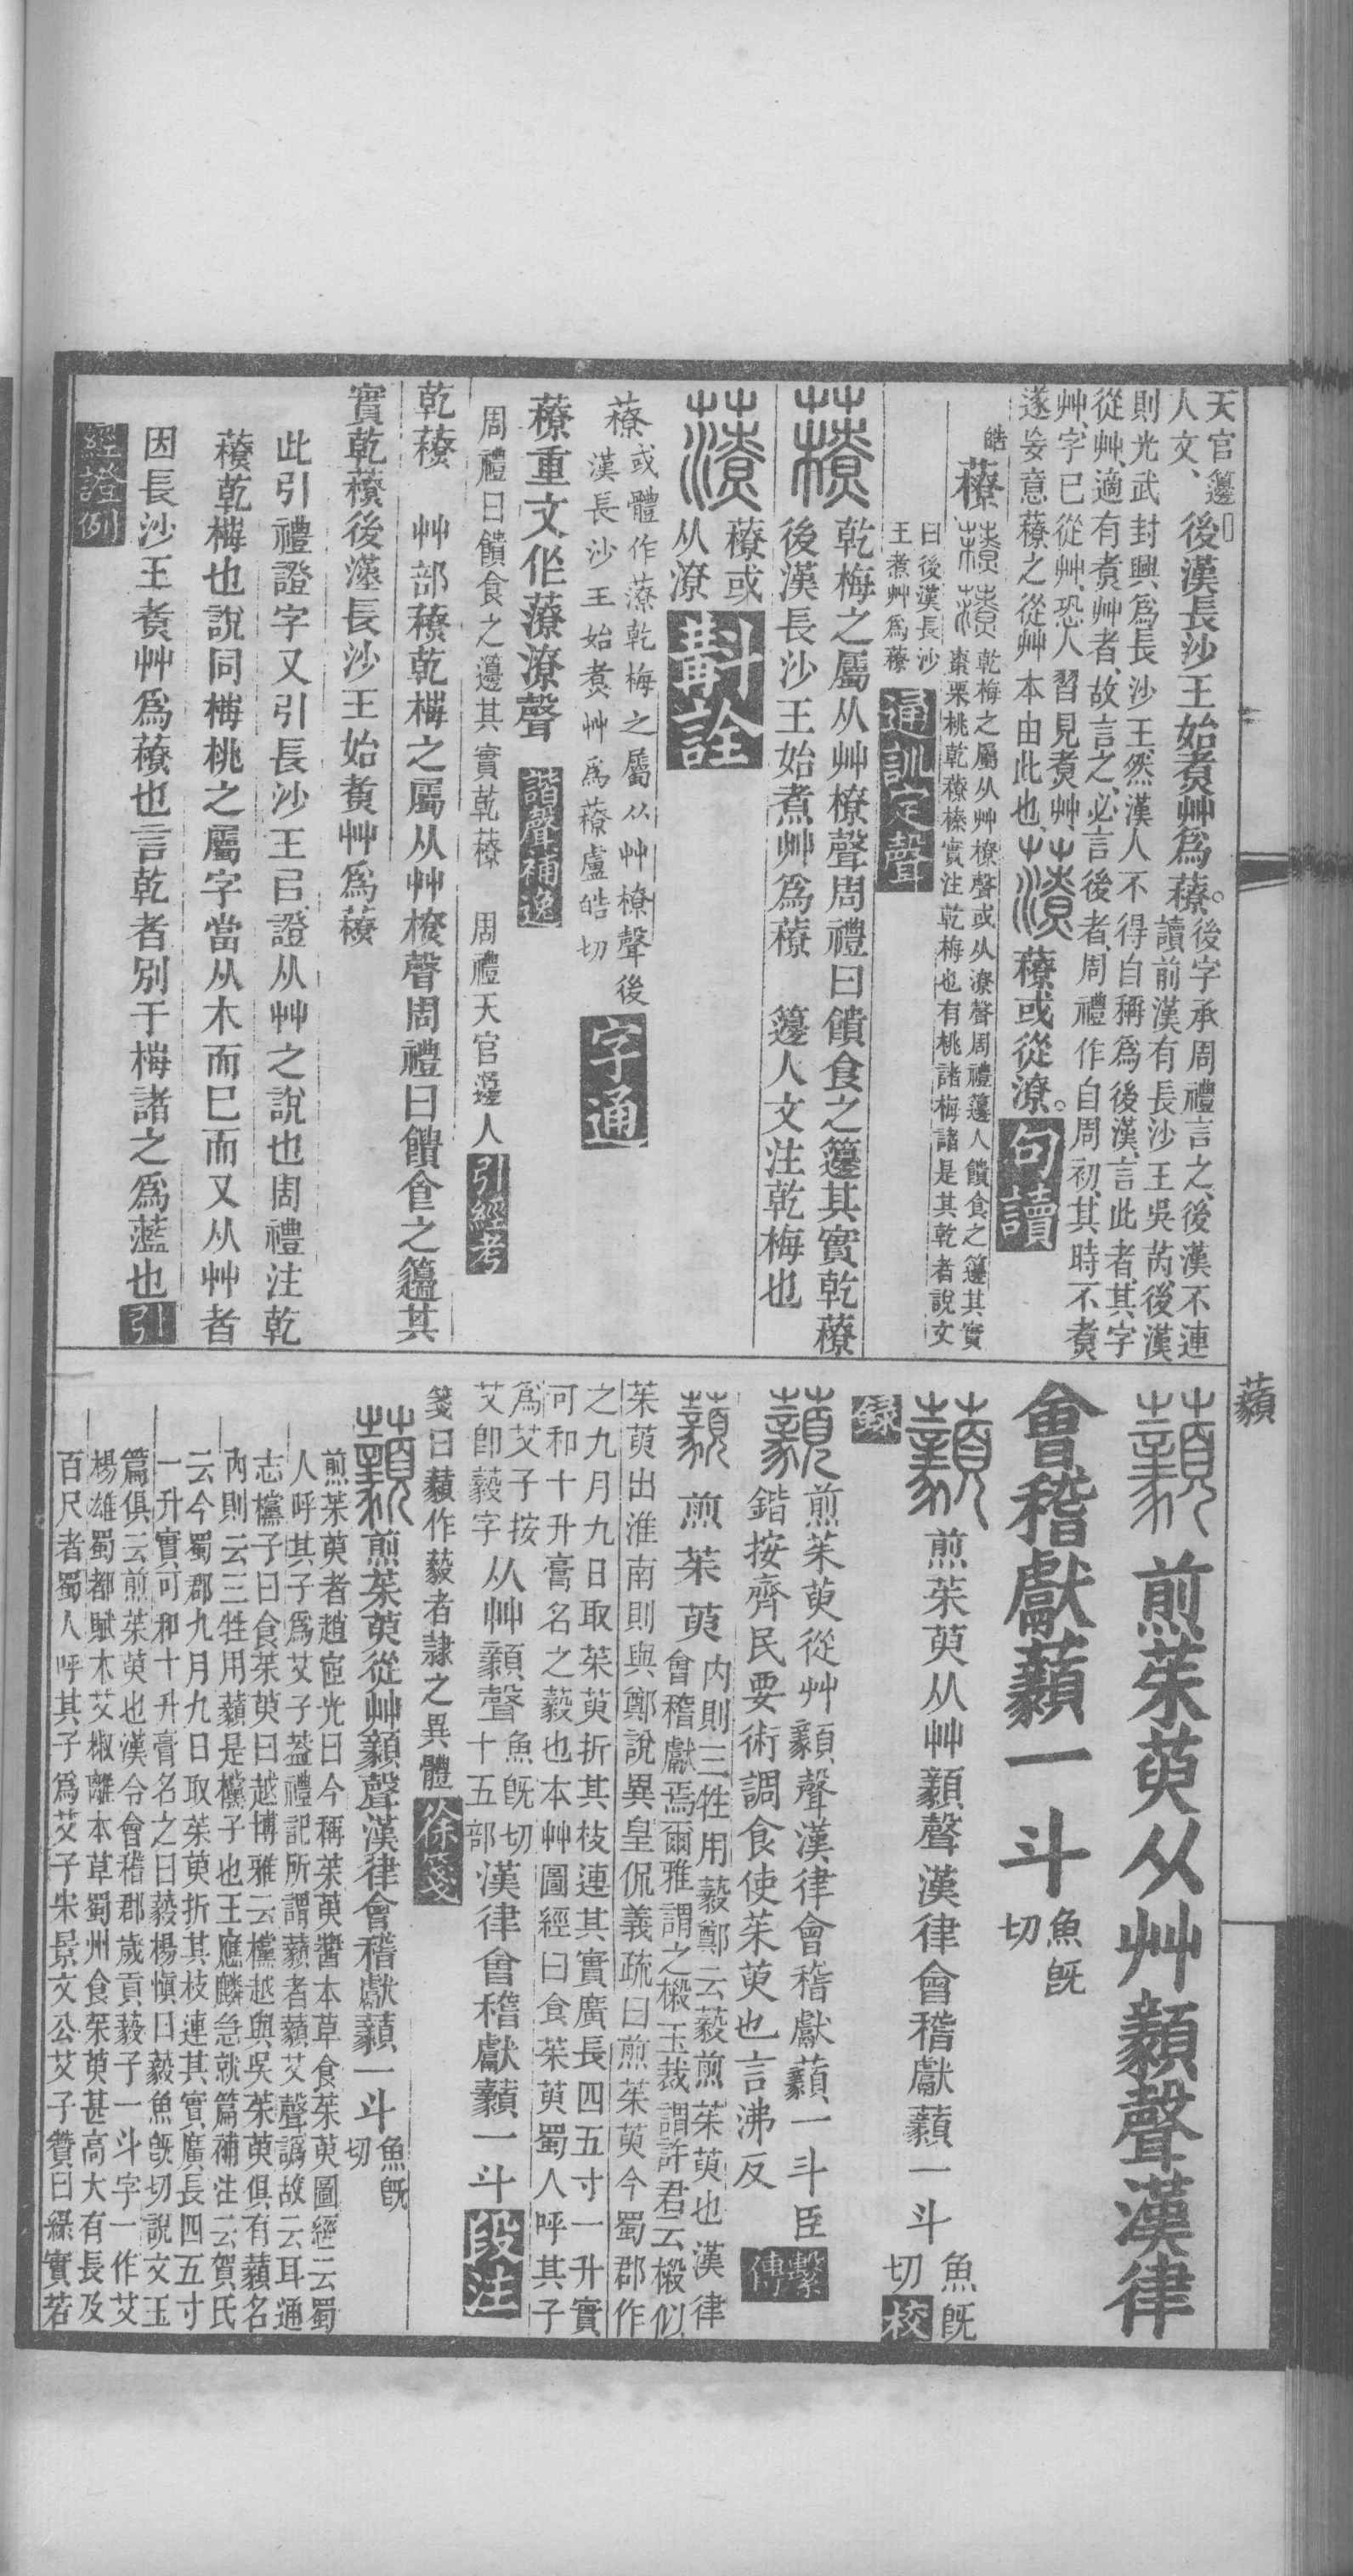 天官籩
人文、
後漢長沙王始煑艸爲䕩。
後字承周禮言之、後漢不連
讀、前漢有長沙王吳芮、後漢
則光武封興爲長沙王、然漢人不得自稱爲後漢、言此者、其字
從艸、適有煑艸者、故言之、必言後者、周禮作自周初、其時不煑
艸、字已從艸、恐人習見煑艸、
遂妄意䕩之從艸本由此也、
䕩或從潦。
句讀
皓
䕩
乾梅之屬从艸橑聲或从潦聲周禮籩人饋食之籩其實
棗栗桃乾䕩榛實注乾梅也有桃諸梅諸是其乾者說文
曰後漢長沙
王煮艸爲䕩
通訓定聲
乾梅之屬从艸橑聲周禮曰饋食之籩其實乾䕩
後漢長沙王始煮艸爲䕩　籩人文注乾梅也
䕩或
从潦
斠詮
䕩或體作藔乾梅之屬从艸橑聲後
漢長沙王始煑艸爲䕩盧皓切
字通
䕩重文作藔潦聲
諧聲補逸
周禮曰饋食之籩其實乾䕩　周禮天官籩人
引經考
乾䕩　艸部䕩乾梅之屬从艸橑聲周禮曰饋食之籩其
實乾䕩後漢長沙王始煑艸爲䕩
此引禮證字又引長沙王㠯證从艸之說也周禮注乾
䕩乾梅也說同梅桃之屬字當从木而巳而又从艸者
因長沙王煑艸爲䕩也言乾者別于梅諸之爲蘫也
引
經證例
藙
煎茱萸从艸顡聲漢律
會稽獻藙一斗
魚旣
切
煎茱萸从艸顡聲漢律會稽獻藙一斗
魚旣
切
校
錄
煎茱萸從艸顡聲漢律會稽獻藙一斗臣
鍇按齊民要術調食使茱萸也言沸反
繫
傳
煎茱萸
内則三牲用藙鄭云藙煎茱萸也漢律
會稽獻焉爾雅謂之榝玉裁謂許君云榝似
茱萸出淮南則與鄭說異皇侃義疏曰煎茱萸今蜀郡作
之九月九日取茱萸折其枝連其實廣長四五寸一升實
可和十升膏名之藙也本艸圖經曰食茱萸蜀人呼其子
爲艾子按
艾卽藙字
从艸顡聲
魚旣切
十五部
漢律會稽獻藙一斗
段注
箋曰藙作藙者隷之異體
徐箋
煎茱萸從艸顡聲漢律會稽獻藙一斗
魚旣
切
煎茱萸者趙宧光曰今稱茱萸醬本草食茱萸圖經云蜀
人呼其子爲艾子葢禮記所謂藙者藙艾聲譌故云耳通
志欓子曰食茱萸曰越博雅云欓越與吳茱萸俱有藙名
内則云三牲用藙是欓子也王應麟急就篇補注云賀氏
云今蜀郡九月九日取茱萸折其枝連其實廣長四五寸
一升實可和十升膏名之曰藙楊愼曰藙魚旣切說文玉
篇俱云煎茱萸也漢令會稽郡歲貢藙子一斗字一作艾
楊雄蜀都賦木艾椒離本草蜀州食茱萸甚高大有長及
百尺者蜀人呼其子爲艾子宋景文公艾子贊曰綠實若